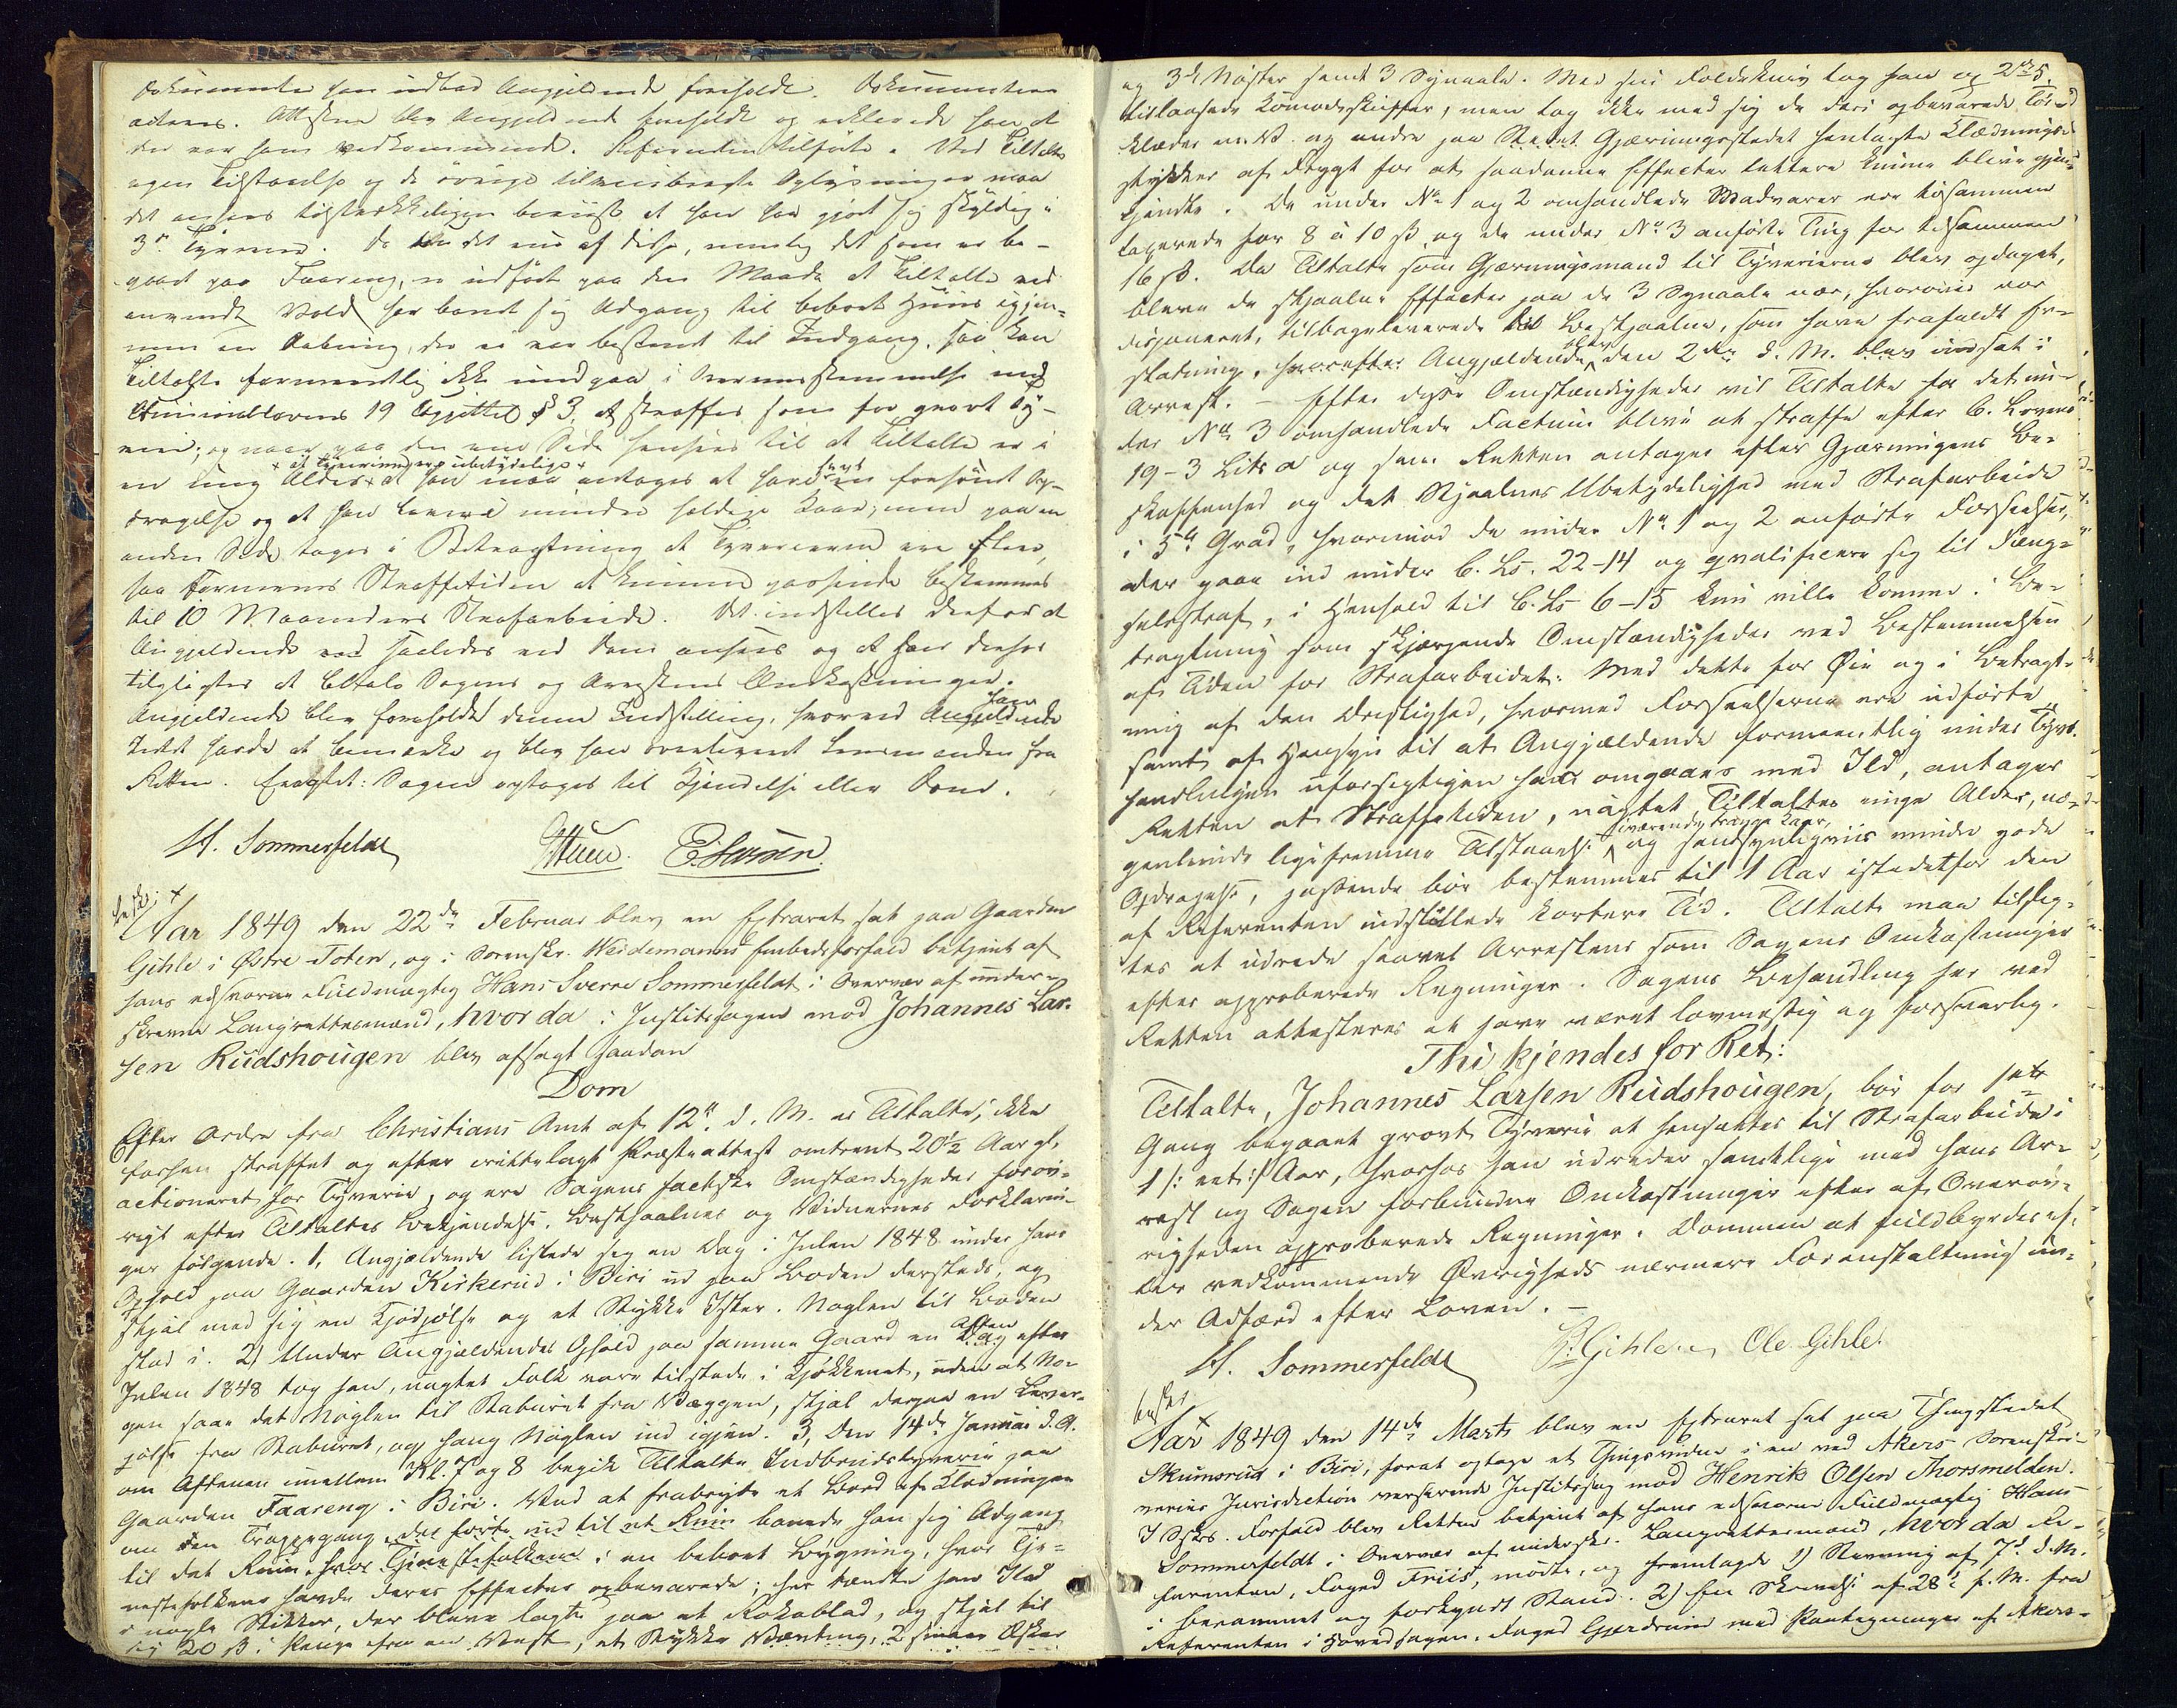 Dokumenter han indbad Angjeldende foreholdt. Dokumenterne
acteres. Attesten blev Angjeldende foreholdt og erklærede han at
den var ham vedkommende. Referenten tilførte. Ved Tiltaltes
egen Tilstaaelse og de øvrige tilveiebragte Oplysninger maa
det ansees tilstrækkeligen beviist at han har gjort sig skyldig i
3de Tyverier. Da det ene af disse, nemlig det som er be-
gaaet paa Faareng, er udført paa den Maade at Tiltalte ved
anvendt Vold har banet sig Adgang til beboet Huus igjen-
nem en Aabning, der ei var bestemt til Indgang, saa kan
Tiltalte formeentlig ikke undgaa i Overeensstemmelse med
Criminallovens 19 Capittel § 3, at straffes som for grovt Ty-
veri; og naar paa den ene Side hensees til at Tiltalte er i
+ at Tyverierne ere ubetydelige +
en ung Alder + at han maa antages at have havt en forsømt Op-
dragelse og at have levet i mindre heldige Kaar, men paa en
anden Side tages i Betragtning at Tyverierne ere flere,
saa formenes Straffetiden at kunne passende bestemmes
til 10 Maaneders Strafarbeide. Det indstilles derfor at
Angjeldende saaledes ved Dom ansees og at han derhos
tilpligtes at betale Sagens og Arrestens Omkostninger.
Angjeldende blev foreholdt denne Indstilling, hvorved han
Intet havde at bemærke og blev han overleveret Lensmanden fra
Retten. Eragtet: Sagen optages til Kjendelse eller Dom.
H. Sommerfeldt E. Larsen
Aar 1849 den 22de Februar blev en Extraret sat paa Gaarden
Gihle i Østre Toten, og i Sorenskr. Weidemanns Embedsforfald betjent af
hans edsvorne Fuldmægtig Hans Sverre Sommerfeldt i Overvær af under-
skrevne Laugrettesmænd, hvor da i Justitssagen mod Johannes Lar-
sen Rudshougen blev afsagt saadan
Dom
Efter Ordre fra Christians Amt af 12te d. M. er Tiltalte, ikke
forhen straffet og efter irettelagt Præsteattest omtrent 20½ Aar gl.
actioneret for Tyverie, og ere Sagens factiske Omstændigheder forøv-
rigt efter Tiltaltes Bekjendelse, Bestjaalnes og Vidnernes Forklarin-
ger følgende. 1, Angjældende listede sig en Dag i Julen 1848 under hans
Ophold paa Gaarden Kirkerud i Biri ud paa Boden dersteds, og
stjal med sig en Kjødpølse og et Stykke Ister. Nøglen til Boden
stod i. 2) Under Angjældendes Ophold paa samme Gaard en Aften efter
Julen 1848 tog han, uagtet Folk vare tilstede i Kjøkkenet, uden at No-
gen saae det Nøglen til Staburet fra Væggen, stjal derpaa en Lever-
pølse fra Staburet, og hang Nøglen ind igjen. 3, Den 14de Januar d. A.
om Aftenen imellem Kl. 7 og 8 begik Tiltalte Indbrudstyverie paa
Gaarden Faareng i Biri. Ved at frabryde et Bord af Klædningen
om den Trappegang, der førte ind til et Rum banede han sig Adgang
til det Rum, hvor Tjenestefolkene i en beboet Bygning, hvor Tje-
nestefolkene havde deres Effecter opbevarede; her tændte han Ild
i nogle Stikker, der bleve lagte paa et Kakeblad, og stjal til
sig 20 ß i Penge fra en Vest, et Stykke Vænting, 2 smaae Æsker
og 3de Nøster samt 3 Synaale. Med sin Foldekniv tog han op 2de
tillaasede Komodeskuffer, men tog ikke med sig de deri opbevarede Tøi-
klæder m. V. og andre paa Gjærningsstedet henlagte Klædnings-
stykker af Frygt for at saadanne Effecter lettere kunne blive gjen-
kjendte. De under No 1 og 2 omhandlede Madvarer ere tilsammen
taxerede for 8 à 10 ß, og de under No 3 anførte Ting for tilsammen
16 ß. Da Tiltalte som Gjærningsmand til Tyverierne blev opdaget,
bleve de stjaalne Effecter paa de 3 Synaale nær, hvorover var
disponeret, tilbageleverede de Bestjaalne, som have frafaldt Er-
statning, hvorefter Angjældende den 2den d. M. blev indsat i
Arrest. – Efter disse Omstændigheder vil Tiltalte for det un-
der No 3 omhandlede Factum blive at straffe efter C. Lovens
19-3 Litr a og som Retten antager efter Gjærningens Be-
skaffenhed og det Stjaalnes Ubetydelighed med Strafarbeide
i 5te Grad, hvorimod de under No 1 og 2 anførte Forseelser,
der gaae ind under C. Ls. 22-14 og qvalificere sig til Fæng-
selsstraf, i Henhold til C. Ls 6-15 kun ville komme i Be-
tragtning som skjærpende Omstændigheder ved Bestemmelsen
af Tiden for Strafarbeidet. Med dette for Øie og i Betragt-
ning af den Dristighed, hvormed Forseelserne ere udførte
samt af Hensyn til at Angjældende formeentlig under Tyvs-
handlingen uforsigtigen har omgaaes med Ild, antager
Retten at Straffetiden, uagtet Tiltaltes unge Alder, no-
genlunde ligefremme Tilstaaelse, iværende trange Kaar, og sandsynligviis mindre gode
Opdragelse, passende bør bestemmes til 1 Aar istedetfor den
af Referenten indstillede kortere Tid. Tiltalte maa tilplig-
tes at udrede saavel Arrestens som Sagens Omkostninger
efter approberede Regninger. Sagens Behandling her ved
Retten attesteres at have været lovmessig og forsvarlig.
Thi kjendes for Ret:
Tiltalte, Johannes Larsen Rudshougen, bør for 1ste
Gang begaaet grovt Tyverie at hensættes til Strafarbeide i
1 /: eet :/ Aar, hvorhos han udreder samtlige med hans Ar-
rest og Sagen forbundne Omkostninger efter af Øvrig-
righeden approberede Regninger. Dommen at fuldbyrdes ef-
ter vedkommende Øvrigheds nærmere Foranstaltning un-
der Adfærd efter Loven. –
H. Sommerfeldt Gihle Ole Gihle
Aar 1849 den 14de Marts blev en Extraret sat paa Thingstedet
Skumsrud i Biri, forat optage et Thingsvidne i en ved Akers Sorenskri-
veries Jurisdiction verserende Justitssag mod Henrik Olsen Thorsmelden.
I Sskrs. Forfald blev Retten betjent af hans edsvorne Fuldmægtig Hans
Sommerfeldt i Overvær af underskr. Laugrettesmænd, hvor da Re-
ferenten, Foged Friis, mødte, og fremlagde 1) Stevning af 7de d. M.
i berammet og forkyndt Stand. 2) En Skrivelse af 28de f. M. fra
Referenten i Hovedsagen, Foged Gjerdrum med Paategninger af Akers-